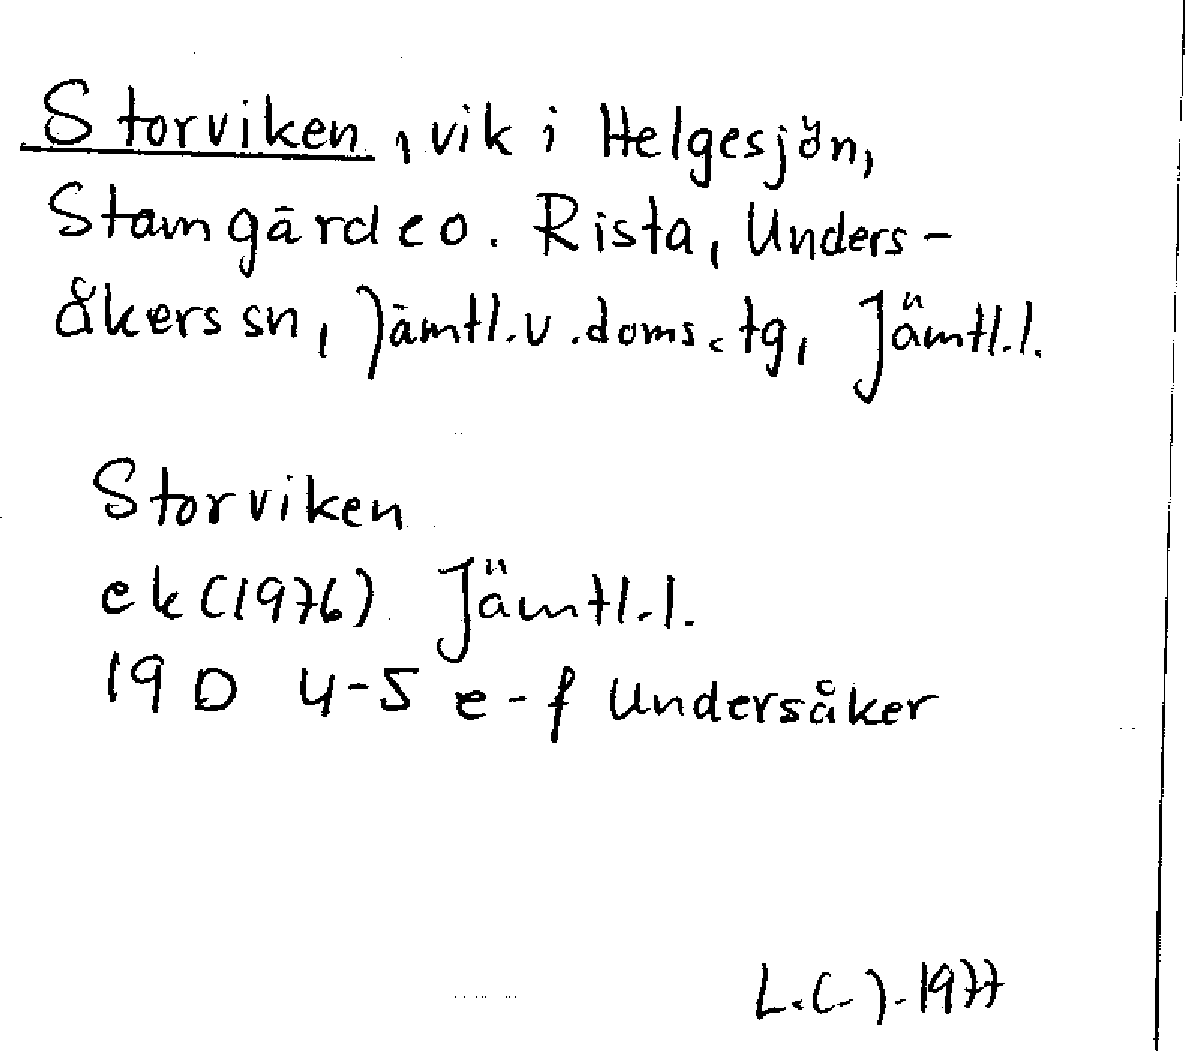 Storviken, vik i Helgesjön,
Stamgärde o. Rista, Unders-
åkers sn, Jämtl. v. doms. tg, Jämtl. l.
Storviken
ek (1976) Jämtl. l.
19 D 4-5 e-f Undersåker
L.C.J. 1977